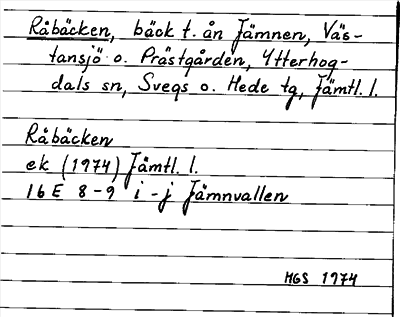 Råbäcken, bäck t. ån Jämnen, Väs-
tansjö o. Prästgården, Ytterhog-
dals sn, Svegs o. Hede tg, Jämtl. l.
Råbäcken
ek (1974) Jämtl. l.
16 E 8-9 i-j Jämnvallen
MGS 1974